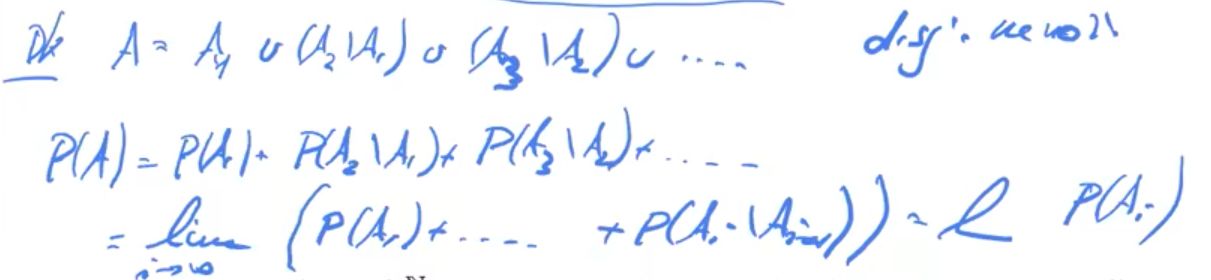 Dk A = A₁ ∪ (A₂\A₁) ∪ (A₃\A₂) ∪ .... disj.
P(A) = P(A₁) + P(A₂\A₁) + P(A₃\A₂) + ....
= lim i→∞ (P(A₁) + .... + P(Aᵢ\Aᵢ₋₁)) = l P(Aᵢ)